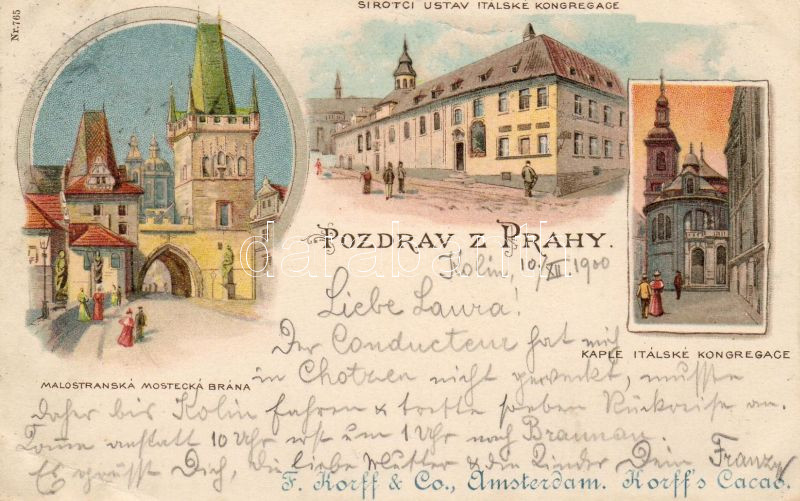 Nr. 765
SIROTČI USTAV ITALSKE KONGREGACE
POZDRAV Z PRAHY.
Kolin, 10/XII 1900
Liebe Laura!
Der Conducteur hat mich
KAPLE ITÁLSKÉ KONGREGACE
in Chotzen nicht geweckt, musste
MALOSTRANSKÁ MOSTECKÁ BRÁNA
daher bis Kolin fahren & trette soeben Rückreise an.
Komme anstatt 10 Uhr erst um 1 Uhr nach Braunau.
Es grüsst Dich, die liebe Mutter & die Kinder Dein Franz
F. Korff & Co., Amsterdam. Korff's Cacao.
darabanth